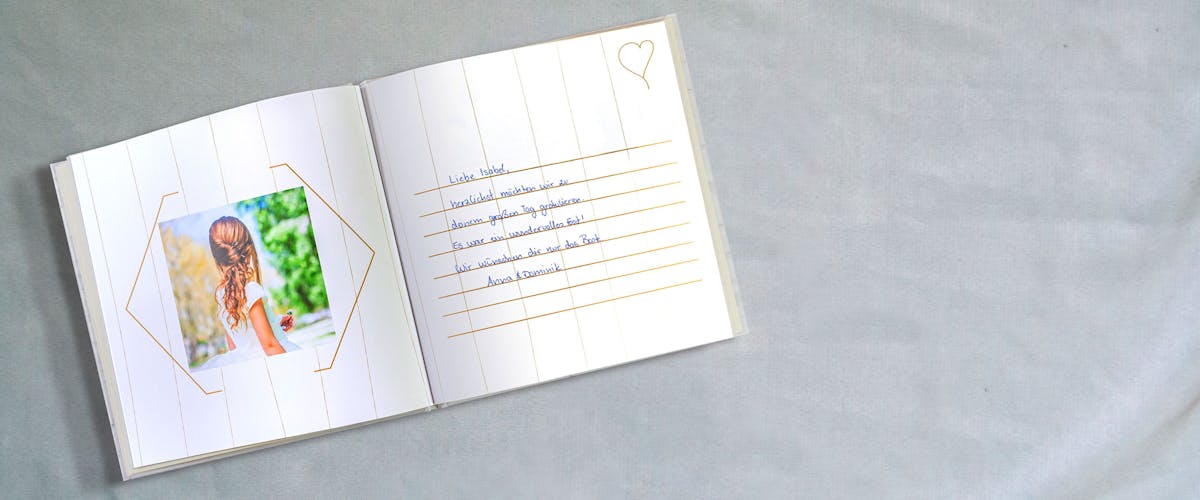 Liebe Isabel,
herzlichst möchten wir zu
deinem großen Tag gratulieren.
Es war ein wundervolles Fest!
Wir wünschen dir nur das Beste
Anna & Dominik